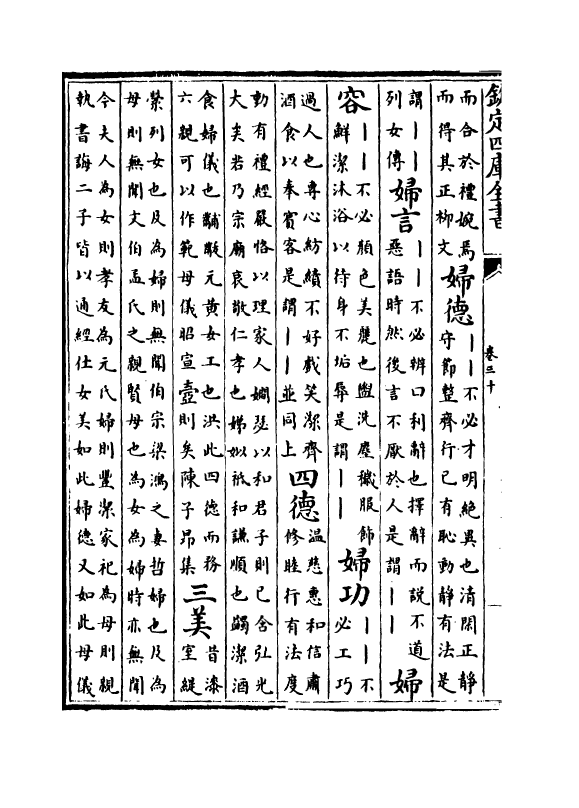 欽定四庫全書 卷三十
而合於禮婉焉
而得其正柳文
婦德
｜｜不必才明絶異也清閑正静
守節整齊行己有恥動静有法是
謂｜｜
列女傳
婦言
｜｜不必辨口利辭也擇辭而説不道
惡語時然後言不厭於人是謂｜｜
婦
容
｜｜不必顔色美麗也盥洗塵穢服飾
鮮潔沐浴以待身不垢辱是謂｜｜
婦功
｜｜不
必工巧
過人也專心紡績不好戲笑潔齊
酒食以奉賓客是謂｜｜並同上
四德
温慈惠和信肅
修睦行有法度
動有禮經嚴恪以理家人嫺瑟以和君子則已含弘光
大矣若乃宗廟哀敬仁孝也娣姒祗和謙順也蠲潔酒
食婦儀也黼黻元黄女工也洪此四德而務
六親可以作範母儀昭宣壼則矣陳子昂集
三美
昔漆
室緹
縈列女也及為婦則無聞伯宗梁鴻之妻哲婦也及為
母則無聞文伯孟氏之親賢母也為女為婦時亦無聞
今夫人為女則孝友為元氏婦則豐潔家祀為母則親
執書誨二子皆以通經仕女美如此婦德又如此母儀